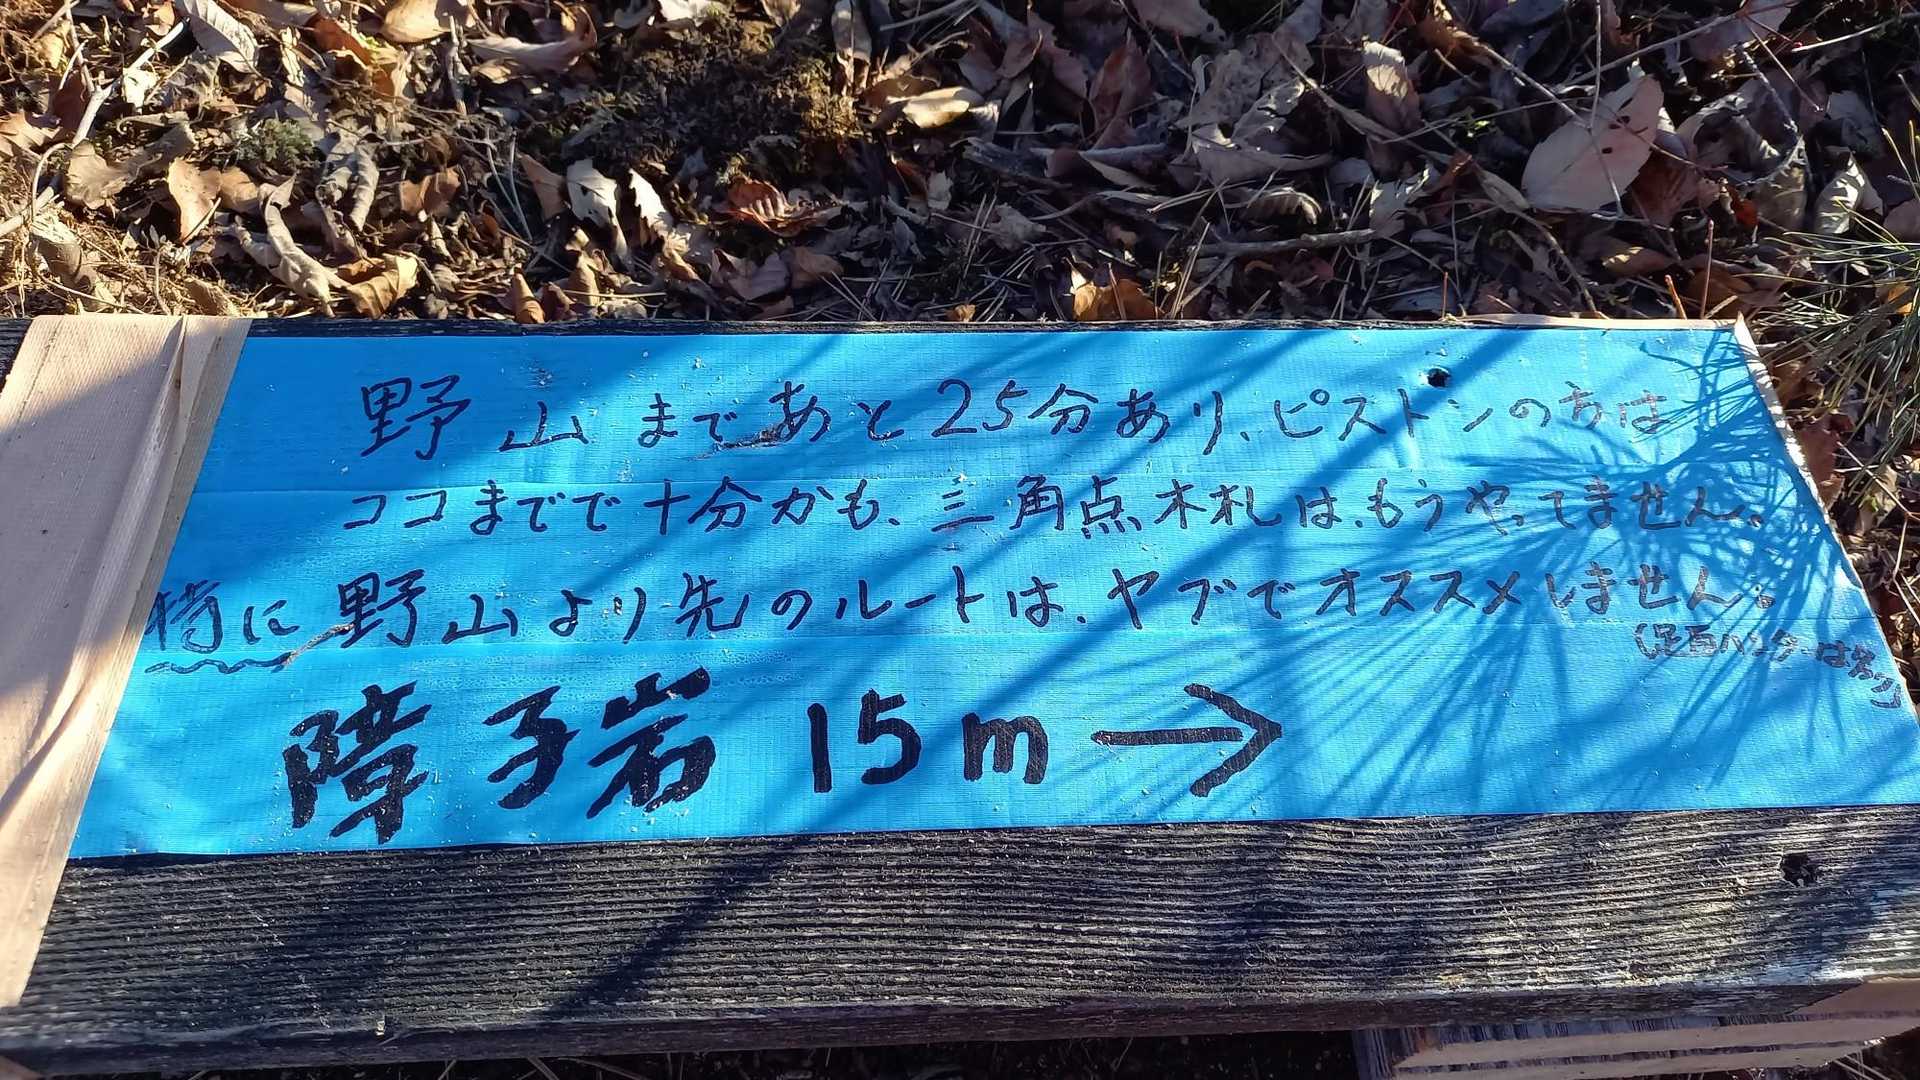 野山まであと25分あり、ピストンの方は
ココまでで十分かも、三角点木札は、もうやってません。
特に野山より先のルートは、ヤブでオススメしません。
(足百ハンターは別)
障子岩 15m→